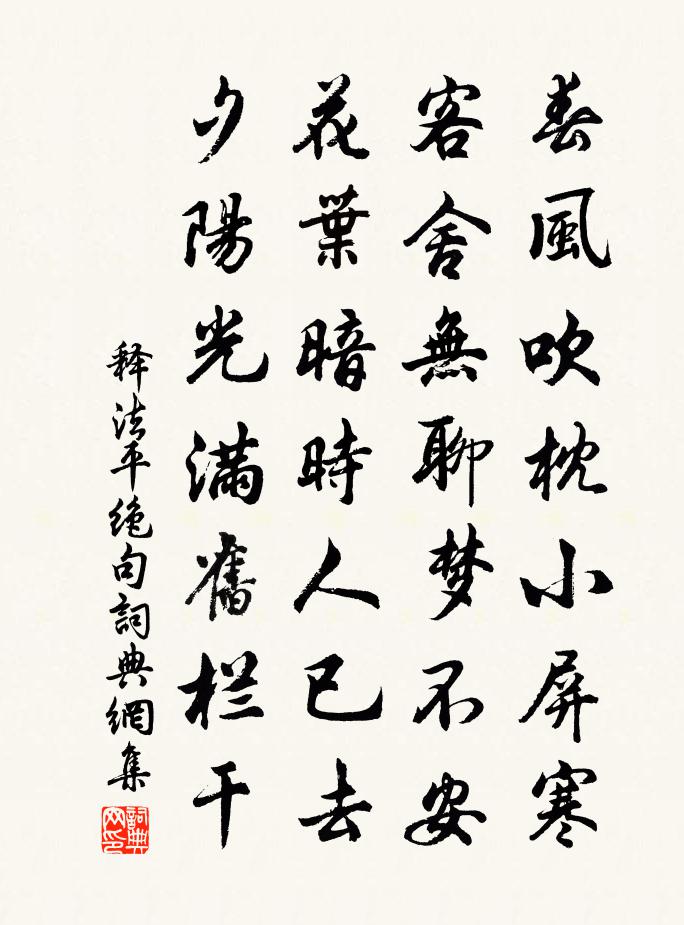 春風吹枕小屏寒
客舍無聊梦不安
花葉暗時人已去
夕陽光满舊栏干
释法平绝句詞典網集
詞典网印